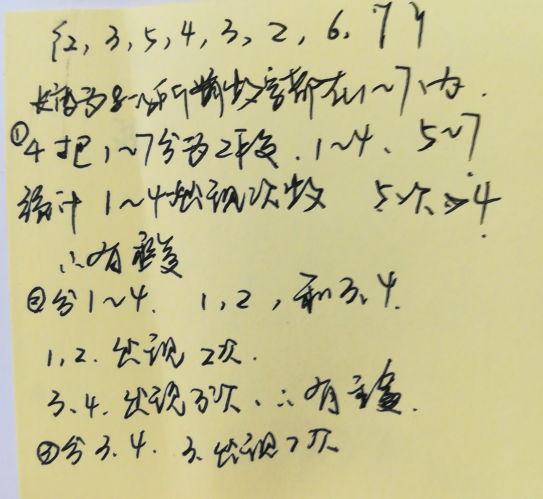 {2, 3, 5, 4, 3, 2, 6, 7}
长度为8 所有数字都在1~7内.
① 4 把1~7分为2段. 1~4、5~7
统计1~4出现次数 5次>4
∴有重复
②分1~4. 1,2,和3,4.
1,2.出现2次.
3.4.出现3次.∴有重复.
③分3.4. 3.出现2次